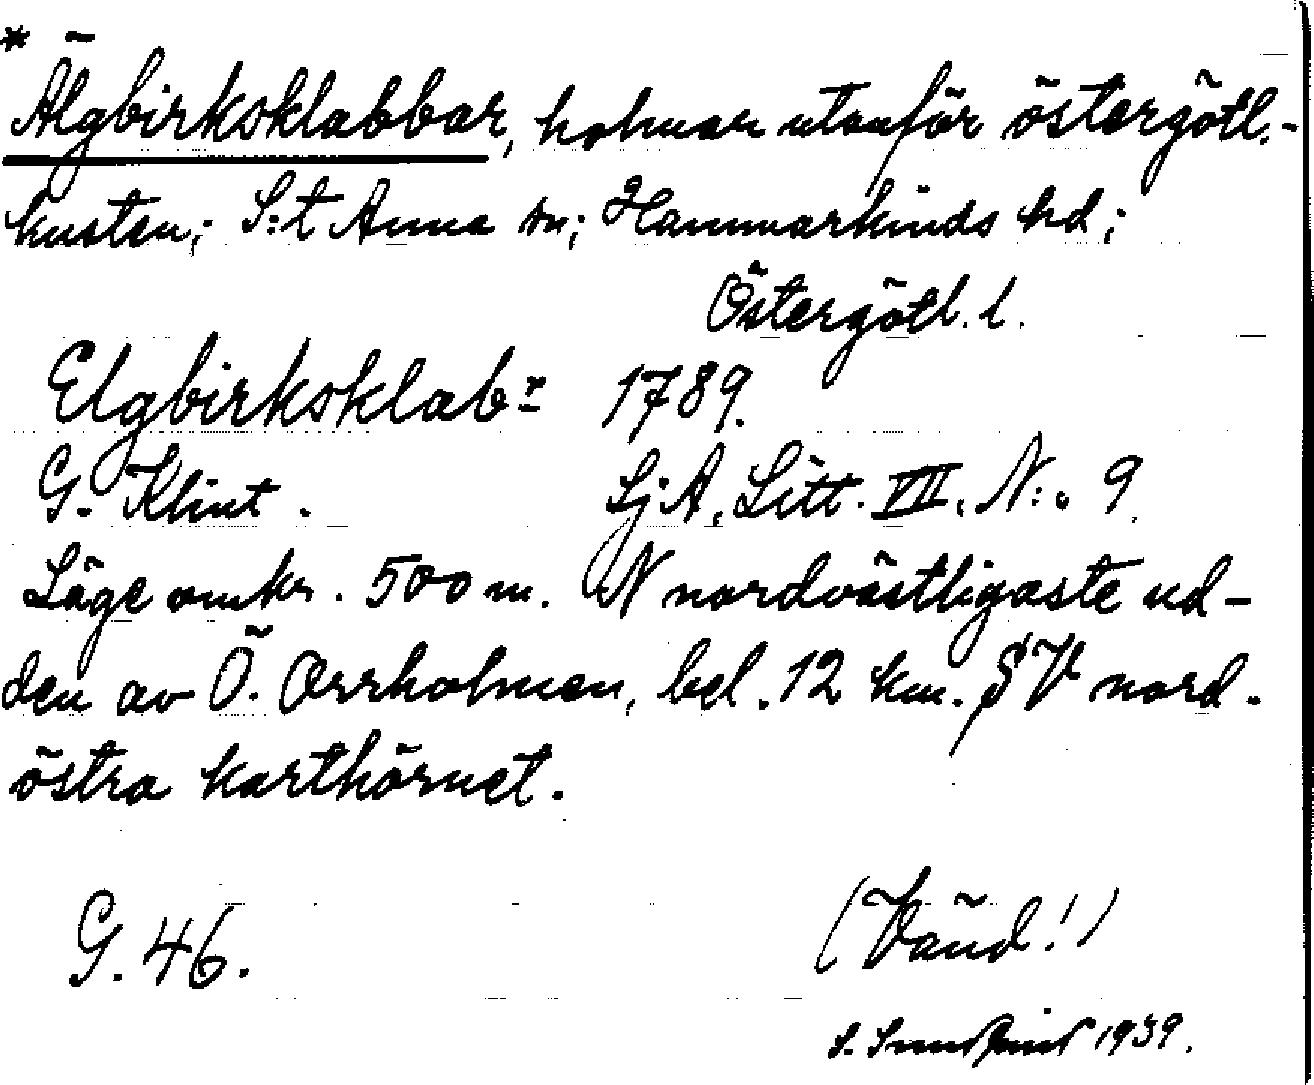 * Älgbirksklabbar, holmar utanför östergötl.-
kusten; S:t Anna sn; Hammarkinds hd;
Östergötl. l.
Elgbirksklab:r 1789.
G. Klint. Sj A, Litt. VII. N:o 9.
Läge omkr. 500 m. N nordvästligaste ud-
den av Ö. Orrholmen, bel. 12 km. SV nord-
östra karthörnet.
G. 46. (Vänd!)
S. 1939.